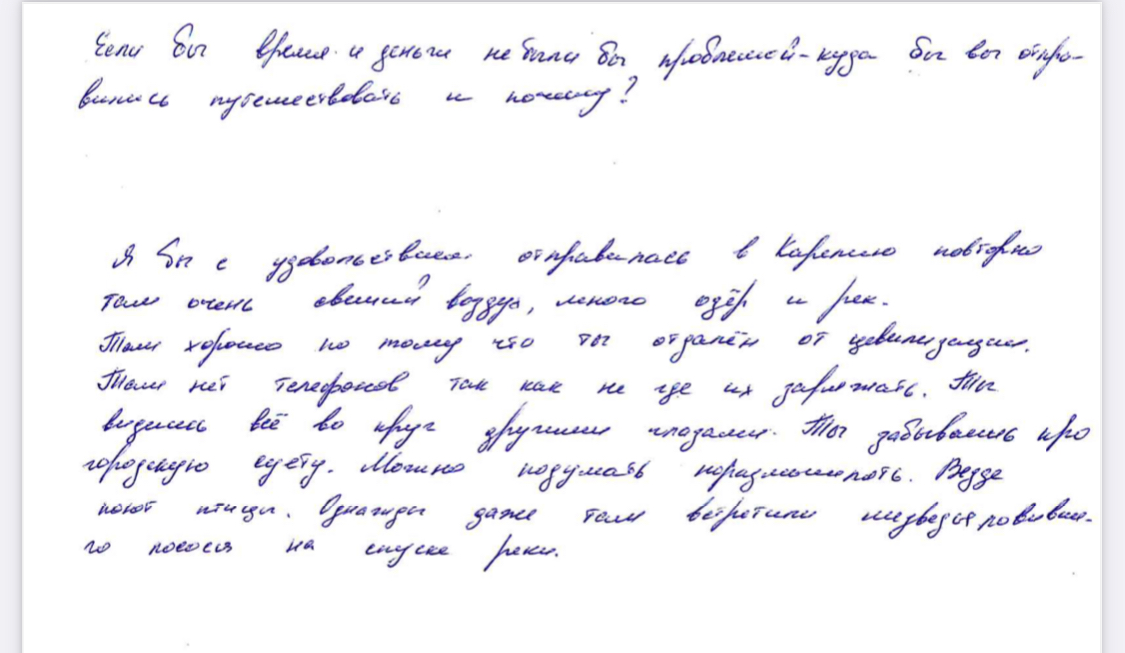 Если бы время и деньги не были бы проблемой - куда бы вы отпра-
вились путешествовать и почему?
Я бы с удовольствием отправилась в Карелию повторно
там очень свежий воздух, много озёр и рек.
Там хорошо по тому что ты отдалён от цевилизации.
Там нет телефонов так как не где их заряжать. Ты
видишь всё во круг другими глазами. Ты забываешь про
городскую суету. Можно подумать поразмышлять. Везде
поют птицы. Однажды даже там встретили медведя ловивше-
го лосося на спуске реки.